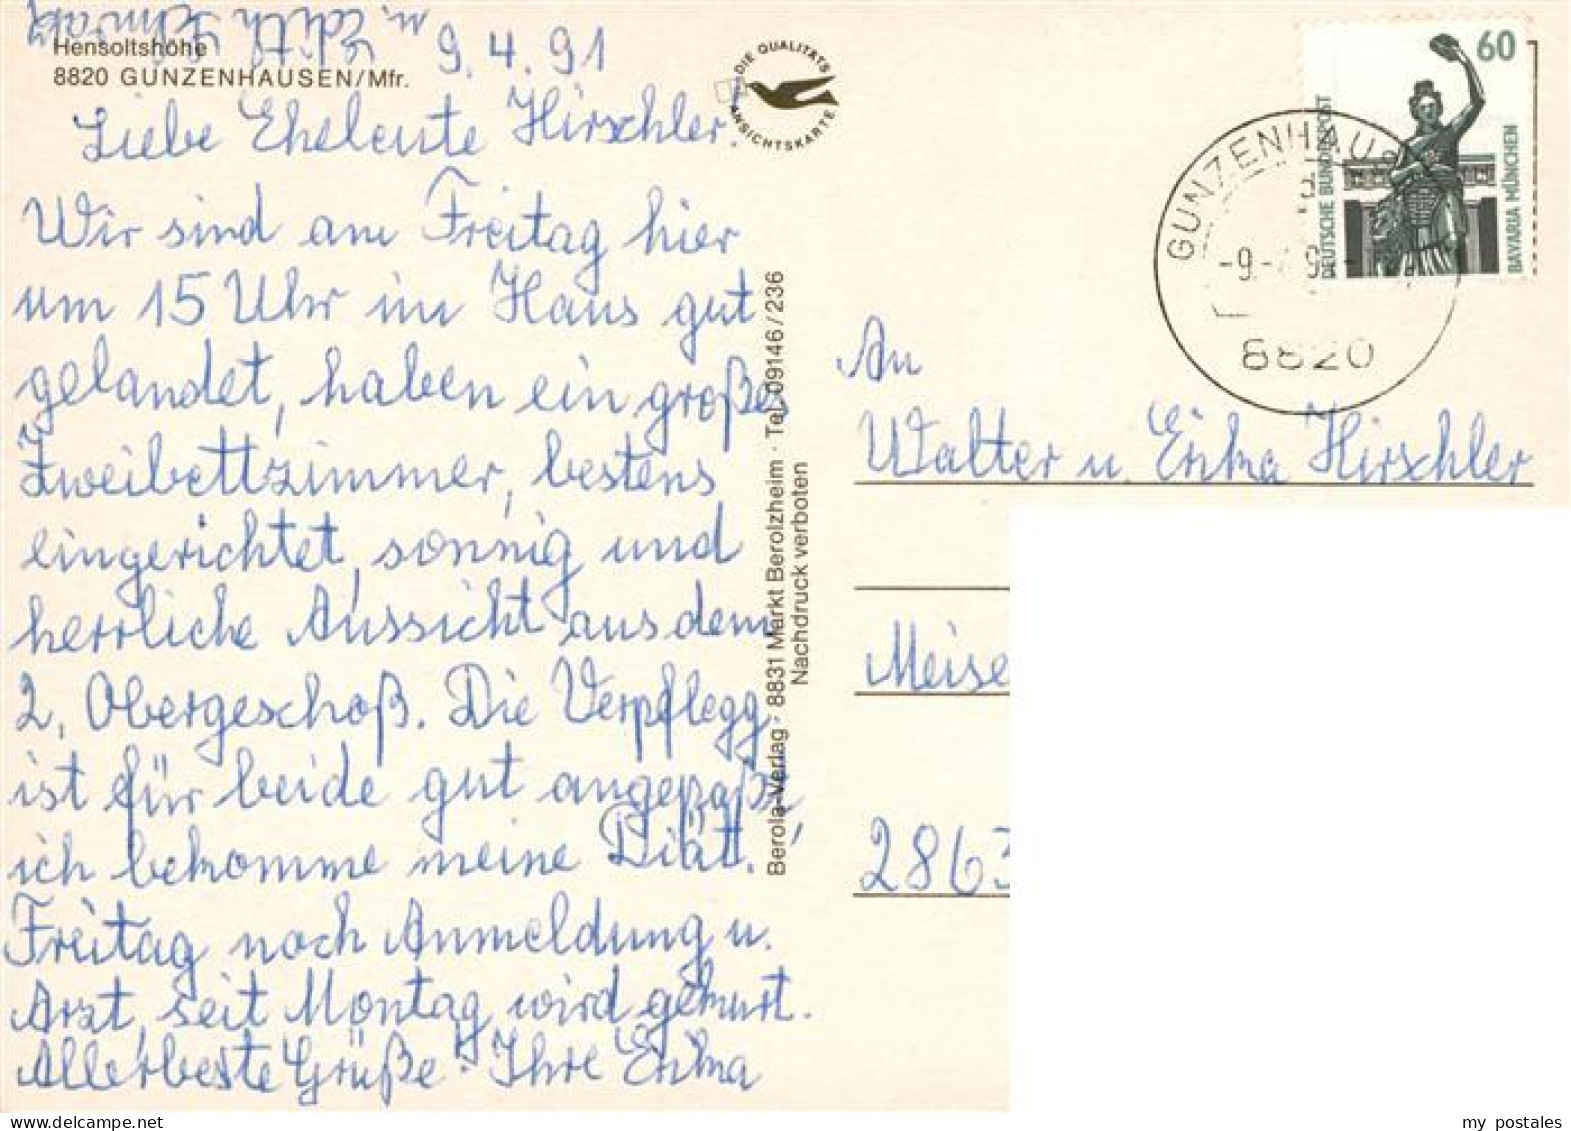 Hensoltshöhe
8820 GUNZENHAUSEN/Mfr.
9.4.91
Liebe Eheleute Hirschler,
Wir sind am Freitag hier
um 15 Uhr im Haus gut
gelandet, haben ein großes
Zweibettzimmer, bestens
eingerichtet, sonnig und
herrliche Aussicht aus dem
2. Obergeschoß. Die Verpflegg.
ist für beide gut angepaßt,
ich bekomme meine Diät!
Freitag noch Anmeldung u.
Arzt, seit Montag wird gekurt.
Allerbeste Grüße. Ihre Erika
u. Edith
DIE QUALITÄTS
ANSICHTSKARTE
Berola-Verlag · 8831 Markt Berolzheim · Tel. 09146/236
Nachdruck verboten
60
DEUTSCHE BUNDESPOST
BAVARIA MÜNCHEN
GUNZENHAUS
-9.-
8820
An
Walter u. Erika Hirschler
Meise
2863
my_postales